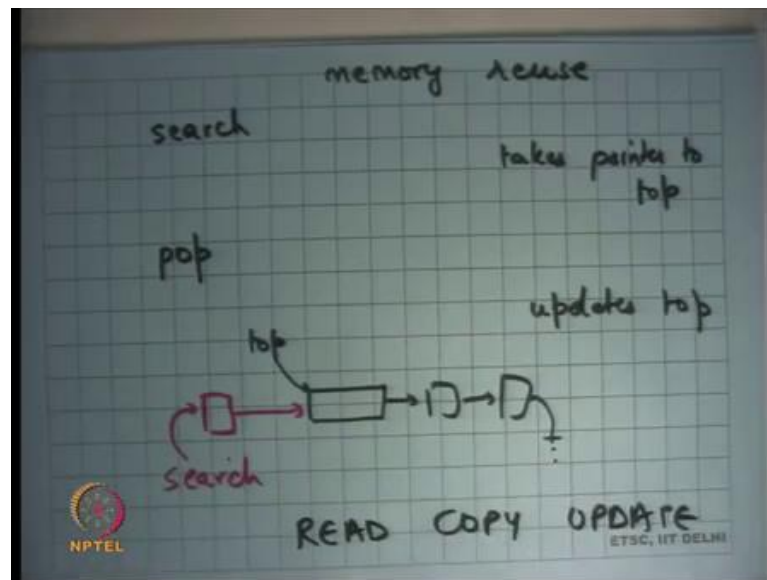 memory reuse
search
takes pointer to
top
pop
updates top
top
search
READ COPY UPDATE
NPTEL
ETSC, IIT DELHI